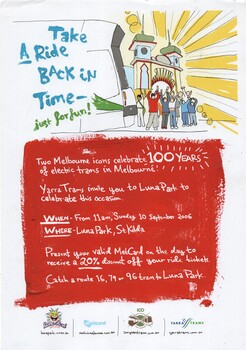 Take
A Ride
BACK in
Time-
just for fun!
Two Melbourne icons celebrate 100 YEARS
of electric trams in Melbourne!
Yarra Trams invite you to Luna Park to
celebrate this occasion.
WHEN - From 11am, Sunday 10 September 2006
WHERE - Luna Park, St Kilda
Present your valid MetCard on the day to
receive a 20% discount off your ride tickets
Catch a route 16, 79 or 96 tram to Luna Park.
100
YARRA TRAMS